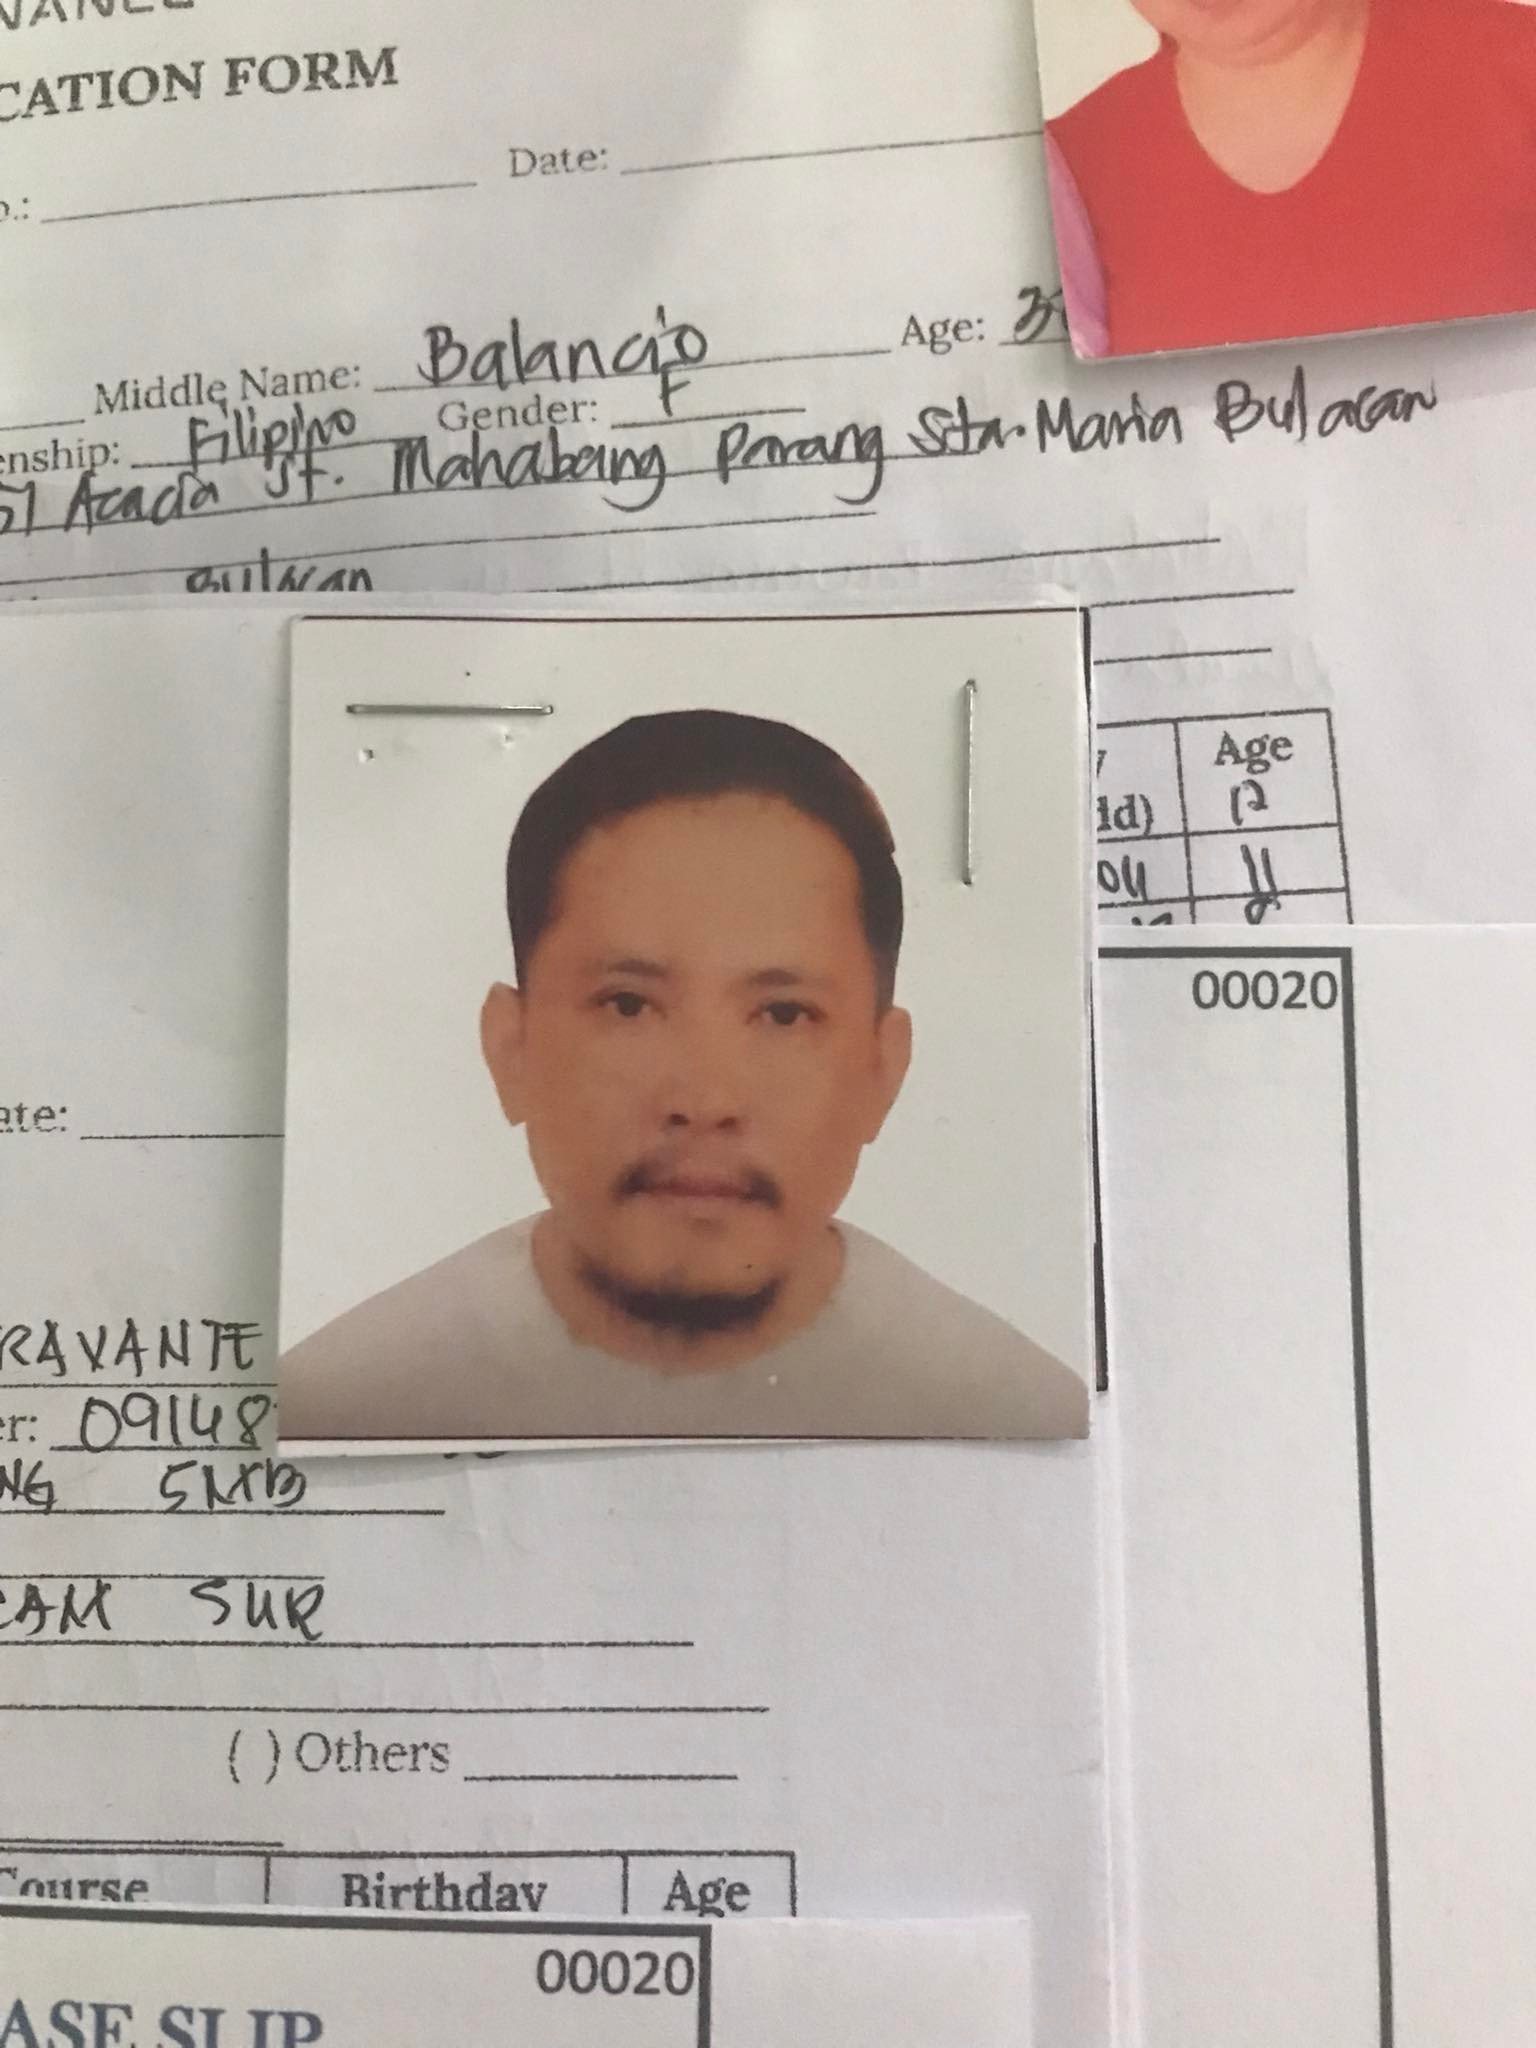 CATION FORM
Date:
Middle Name: Balancio Age:
enship: Filipino Gender: F
Acacia St. Mahabang Parang Sta. Maria Bulacan
Bulacan
Age
dd) 12
11
00020
ate:
RAVANTE
er: 09148
NG SMB
SUR
( ) Others
Course Birthday Age
00020
ASE SLIP